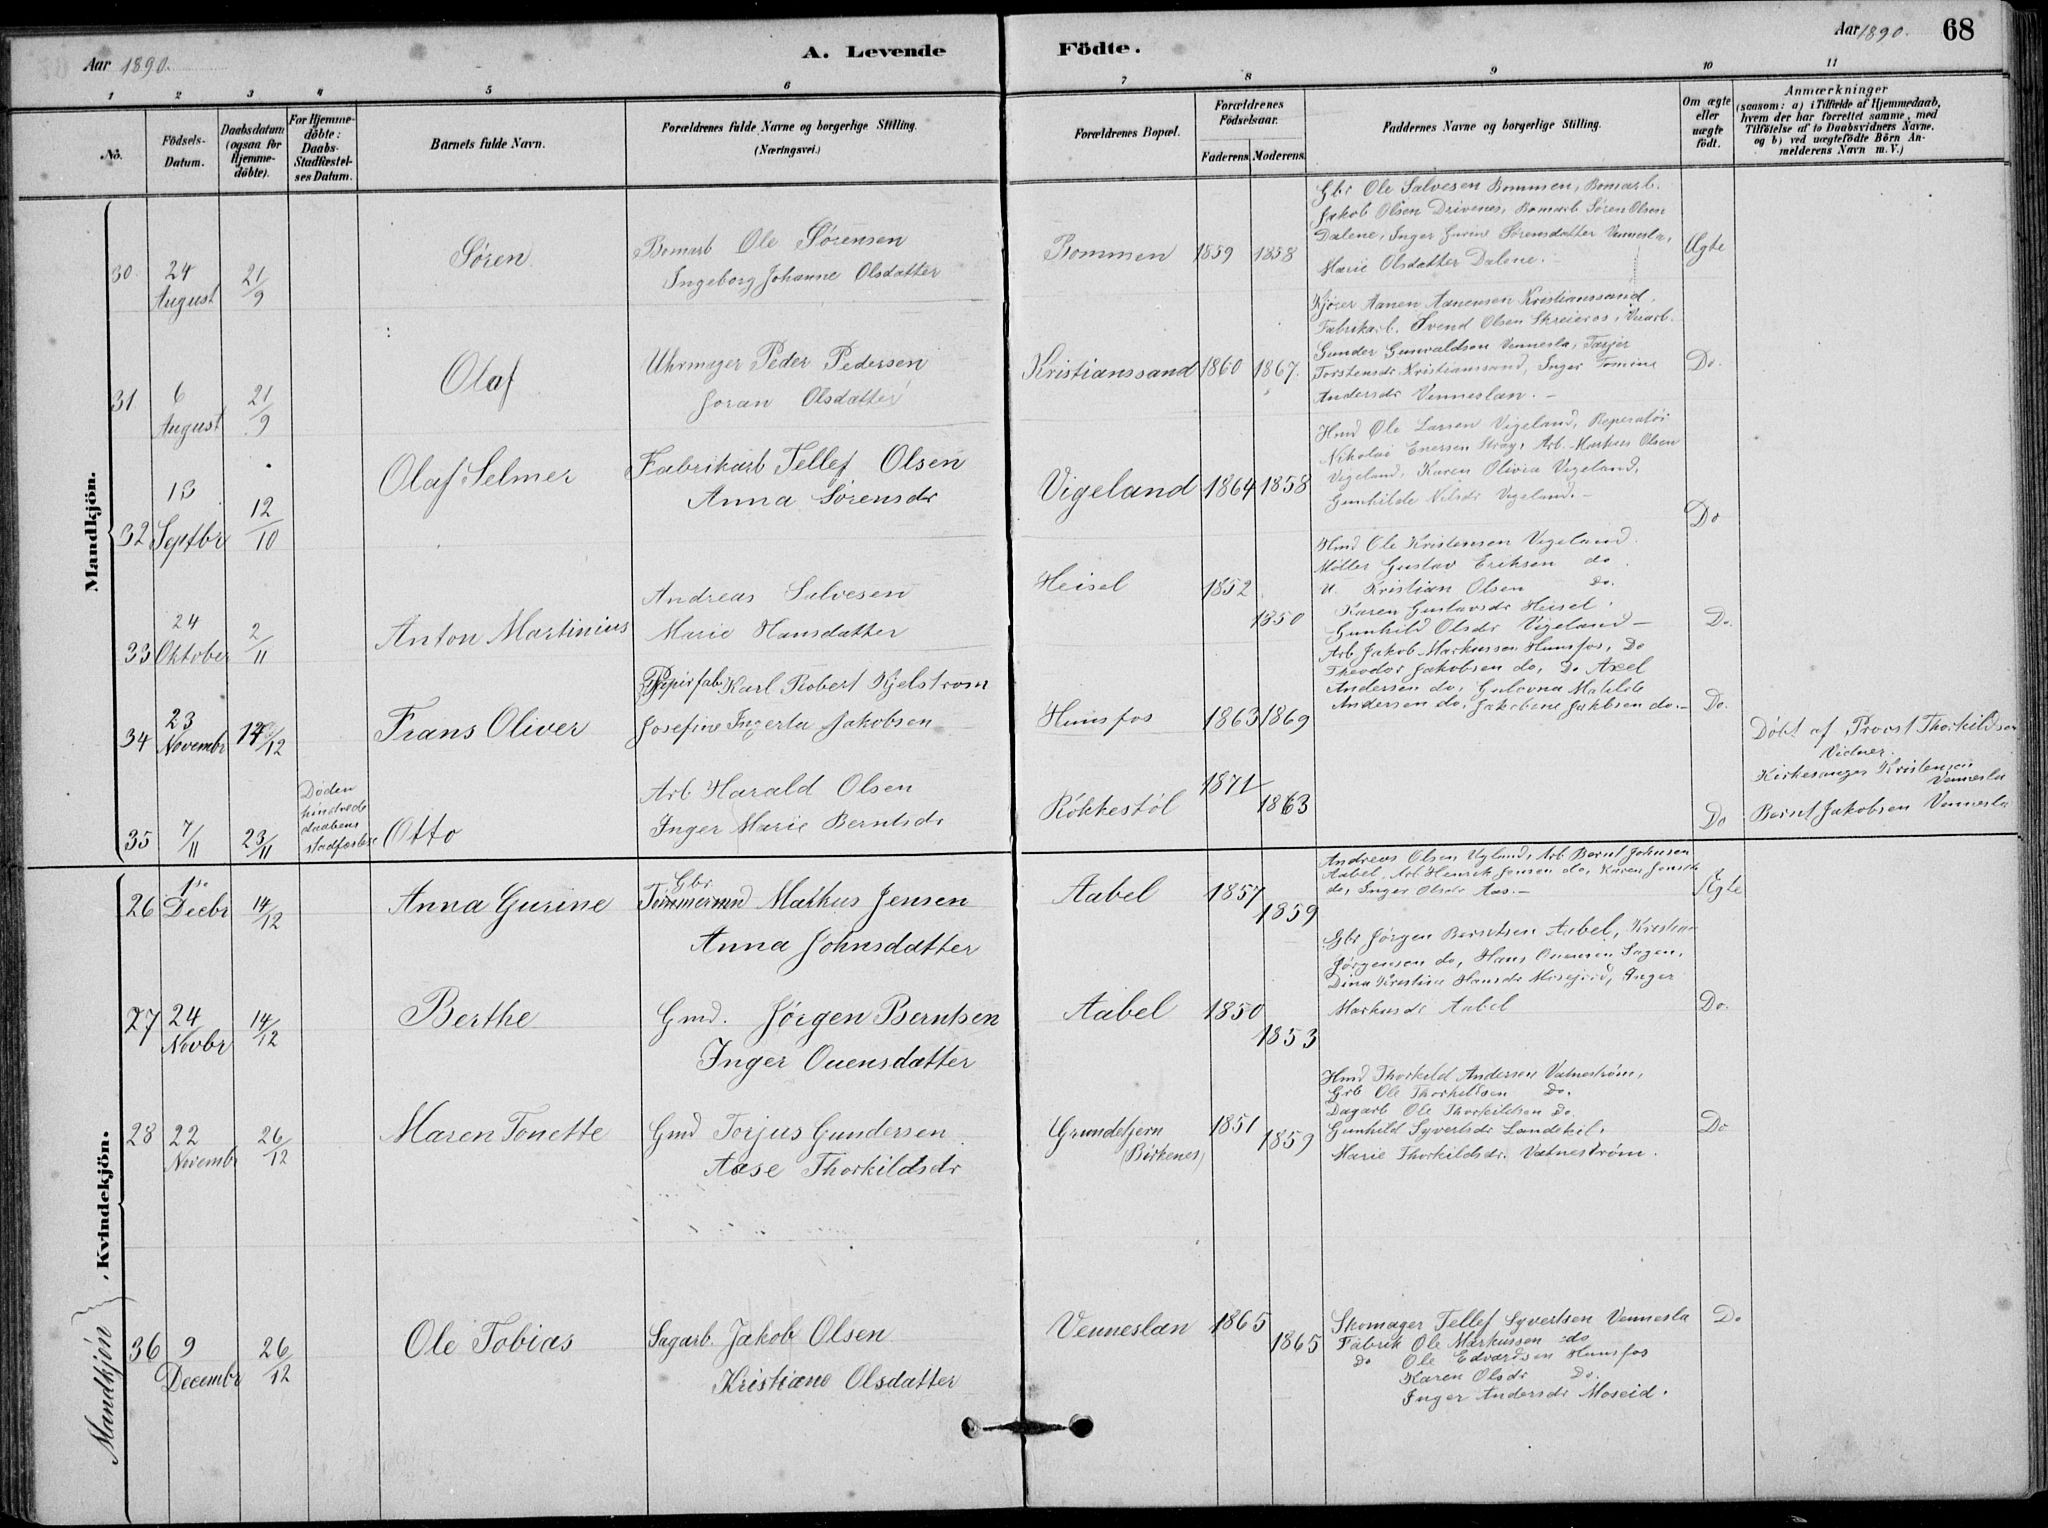 Aar 1890.
A. Levende
Födte.
Aar 1890.
68
1 2 3 4 5 6 7 8 9 10 11
No.
Födsels-
Datum.
Daabsdatum
(ogsaa for
Hjemme-
döbte).
For Hjemme-
döbte:
Daabs-
Stadfæstel-
ses Datum.
Barnets fulde Navn.
Forældrenes fulde Navne og borgerlige Stilling.
(Næringsvei.)
Forældrenes Bopæl.
Forældrenes
Födselsaar.
Faderens. Moderens.
Faddernes Navne og borgerlige Stilling.
Om ægte
eller
uægte
födt.
Anmærkninger
(saasom: a) i Tilfælde af Hjemmedaab,
hvem der har forrettet samme, med
Tilföielse af to Daabsvidners Navne.
og b) ved uægtefödte Börn An-
melderens Navn m. V.)
Mandkjön.
30. 24 August 21/9
Søren
Bomarb Ole Sørensen
Ingeborg Johanne Olsdatter
Bommen 1859 1858
Gbr Ole Salvesen Bommen, Bomarb.
Jakob Olsen Drivenes, Bomarb Søren Olsen
Dalene, Inger Gurine Sørensdatter Vennesla,
Marie Olsdatter Dalene.
Ægte
31 6 August 21/9
Olaf
Uhrmager Peder Pedersen
Joran Olsdatter
Kristianssand 1860 1867.
Kjører Aanen Aanensen Kristianssand,
Fabrikarb. Svend Olsen Skreieros,
Gunder Gunvaldsen Vennesla, Tarjer
Torstensdr Kristianssand, Inger Tomine
Andersdr Venneslan. -
Do.
32 13 Septbr 12/10
Olaf Selmer
Fabrikarb Tellef Olsen
Anna Sørensdr
Vigeland 1864 1858
Hmd Ole Larsen Vigeland, Reperatør
Nikolai Enersen Strag, Arb. Markus Olsen
Vigeland, Karen Olivia Vigeland,
Gunhilde Nilsdr Vigeland. -
Do
33 24 Oktober 2/11
Anton Martinius
Andreas Salvesen
Marie Hansdatter
Heisel 1852 1850
Hmd Ole Kristensen Vigeland.
Møller Gustav Eriksen do.
U. Kristian Olsen Do.
Karen Gustavsdr Heisel.
Gunhild Olsdr Vigeland -
Do.
34 23 Novembr 14/12
Frans Oliver
Papirfab Karl Robert Kjelstrom
Josefine Ingerta Jakobsen
Hunsfos 1863 1869
Arb Jakob Markussen Hunsfos, Do
Theodor Jakobsen do, Do Axel
Andersen do, Gulovna Matilde
Andersen do, Jakobine Jakobsen do. -
Do.
35 7/11 23/11
Døden
hindrede
daabens
stadfæstelse
Otto
Arb Harald Olsen
Inger Marie Berntsdr
Røkkestøl 1871 1863
Do
Döbt af Provst Thorkildsen
Vidner.
Kirkesanger Kristensen
Vennesla
Bernt Jakobsen Vennesla
Kvindekjön.
26 1ste Decbr 14/12
Anna Gurine
Gbr
Tømmermd Markus Jensen
Anna Johnsdatter
Aabel 1857 1859
Andreas Olsen Vigland, Arb Bernt Johnsen
Aabel, Arb Henrik Jensen do, Karen Jensdr
do, Inger Olsdr Aas. -
Ægte
27 24 Novbr 14/12
Berthe
Gmd. Jørgen Berntsen
Inger Ouensdatter
Aabel 1850 1853
Gbr Jørgen Berntsen Aabel, Kristian
Jørgensen do, Hans Ouensen Sagen,
Dina Kristine Hansdr Mosejord, Inger
Markusdr Aabel
Do.
28 22 Novembr 26/12
Maren Tonette
Gmd Torjus Gundersen
Aase Thorkildsdr
Grundetjern
(Birkenes) 1851 1859
Hmd Thorkild Andersen Vatnestrøm,
Grb Ole Thorkildsen Do.
Dagarb Ole Thorkildsen Do.
Gunhild Syvertsdr Landeköl.
Marie Thorkildsdr. Vatnestrøm.
Do
Mandkjön
36 9 Decembr 26/12
Ole Tobias
Sagarb. Jakob Olsen
Kristiane Olsdatter
Venneslan 1865 1865
Skomager Tellef Syvertsen Vennesla
Fabrik Ole Markussen do
Do Ole Edvardsen Hunsfos
Karen Olsdr Do.
Inger Andersdr Moseid.
Do